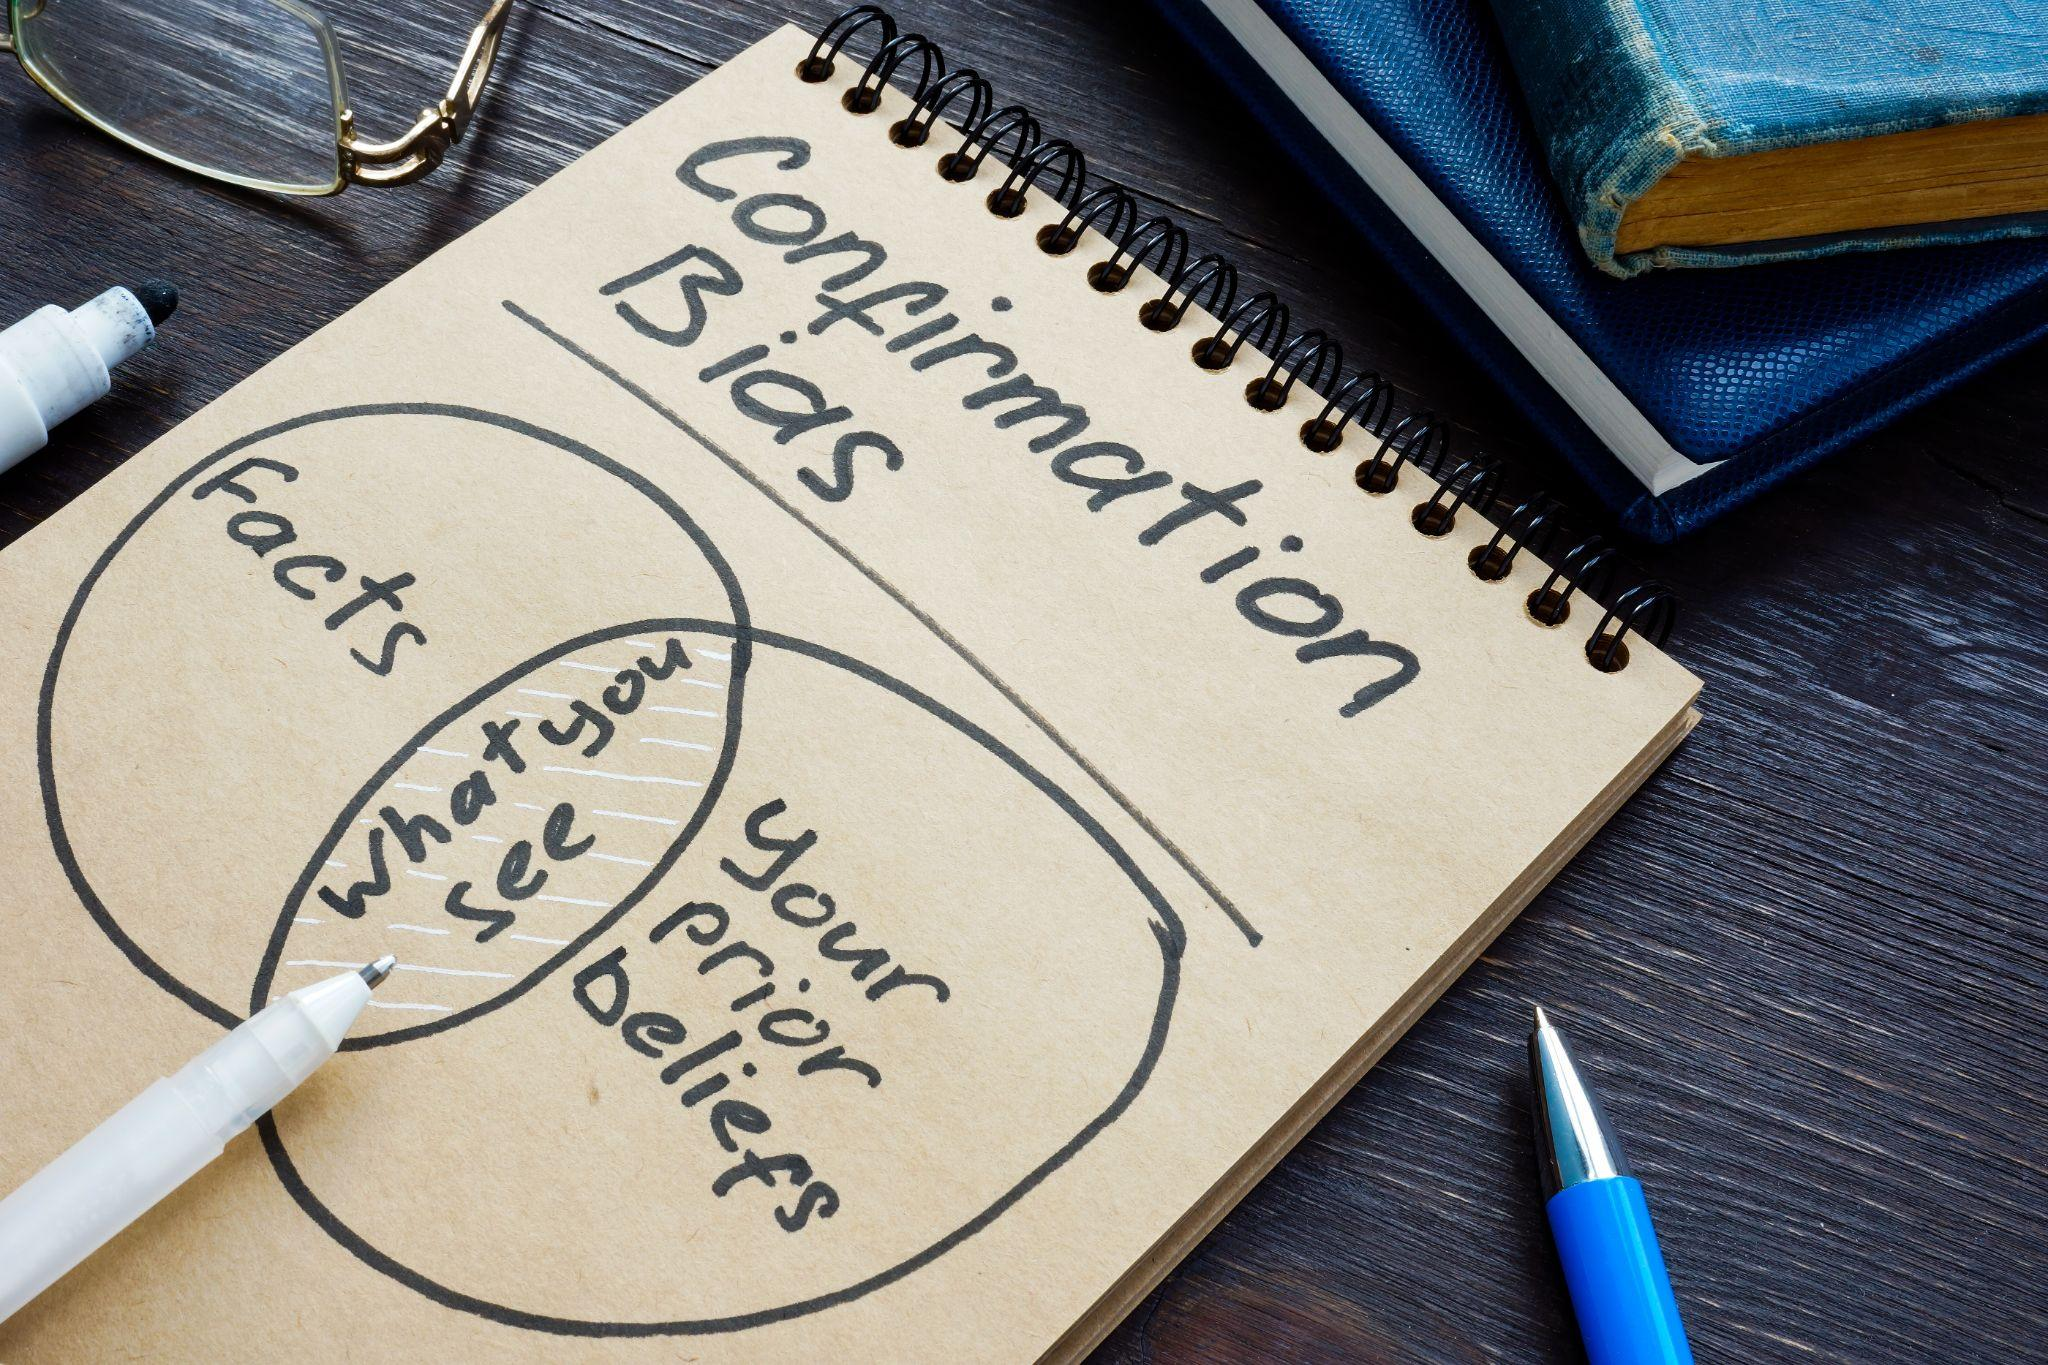 Confirmation
Bias
Facts
what you
see
your
prior
beliefs